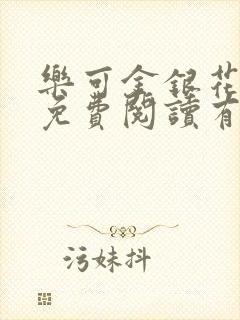 樂可金銀花
免費閱讀有
污妹抖